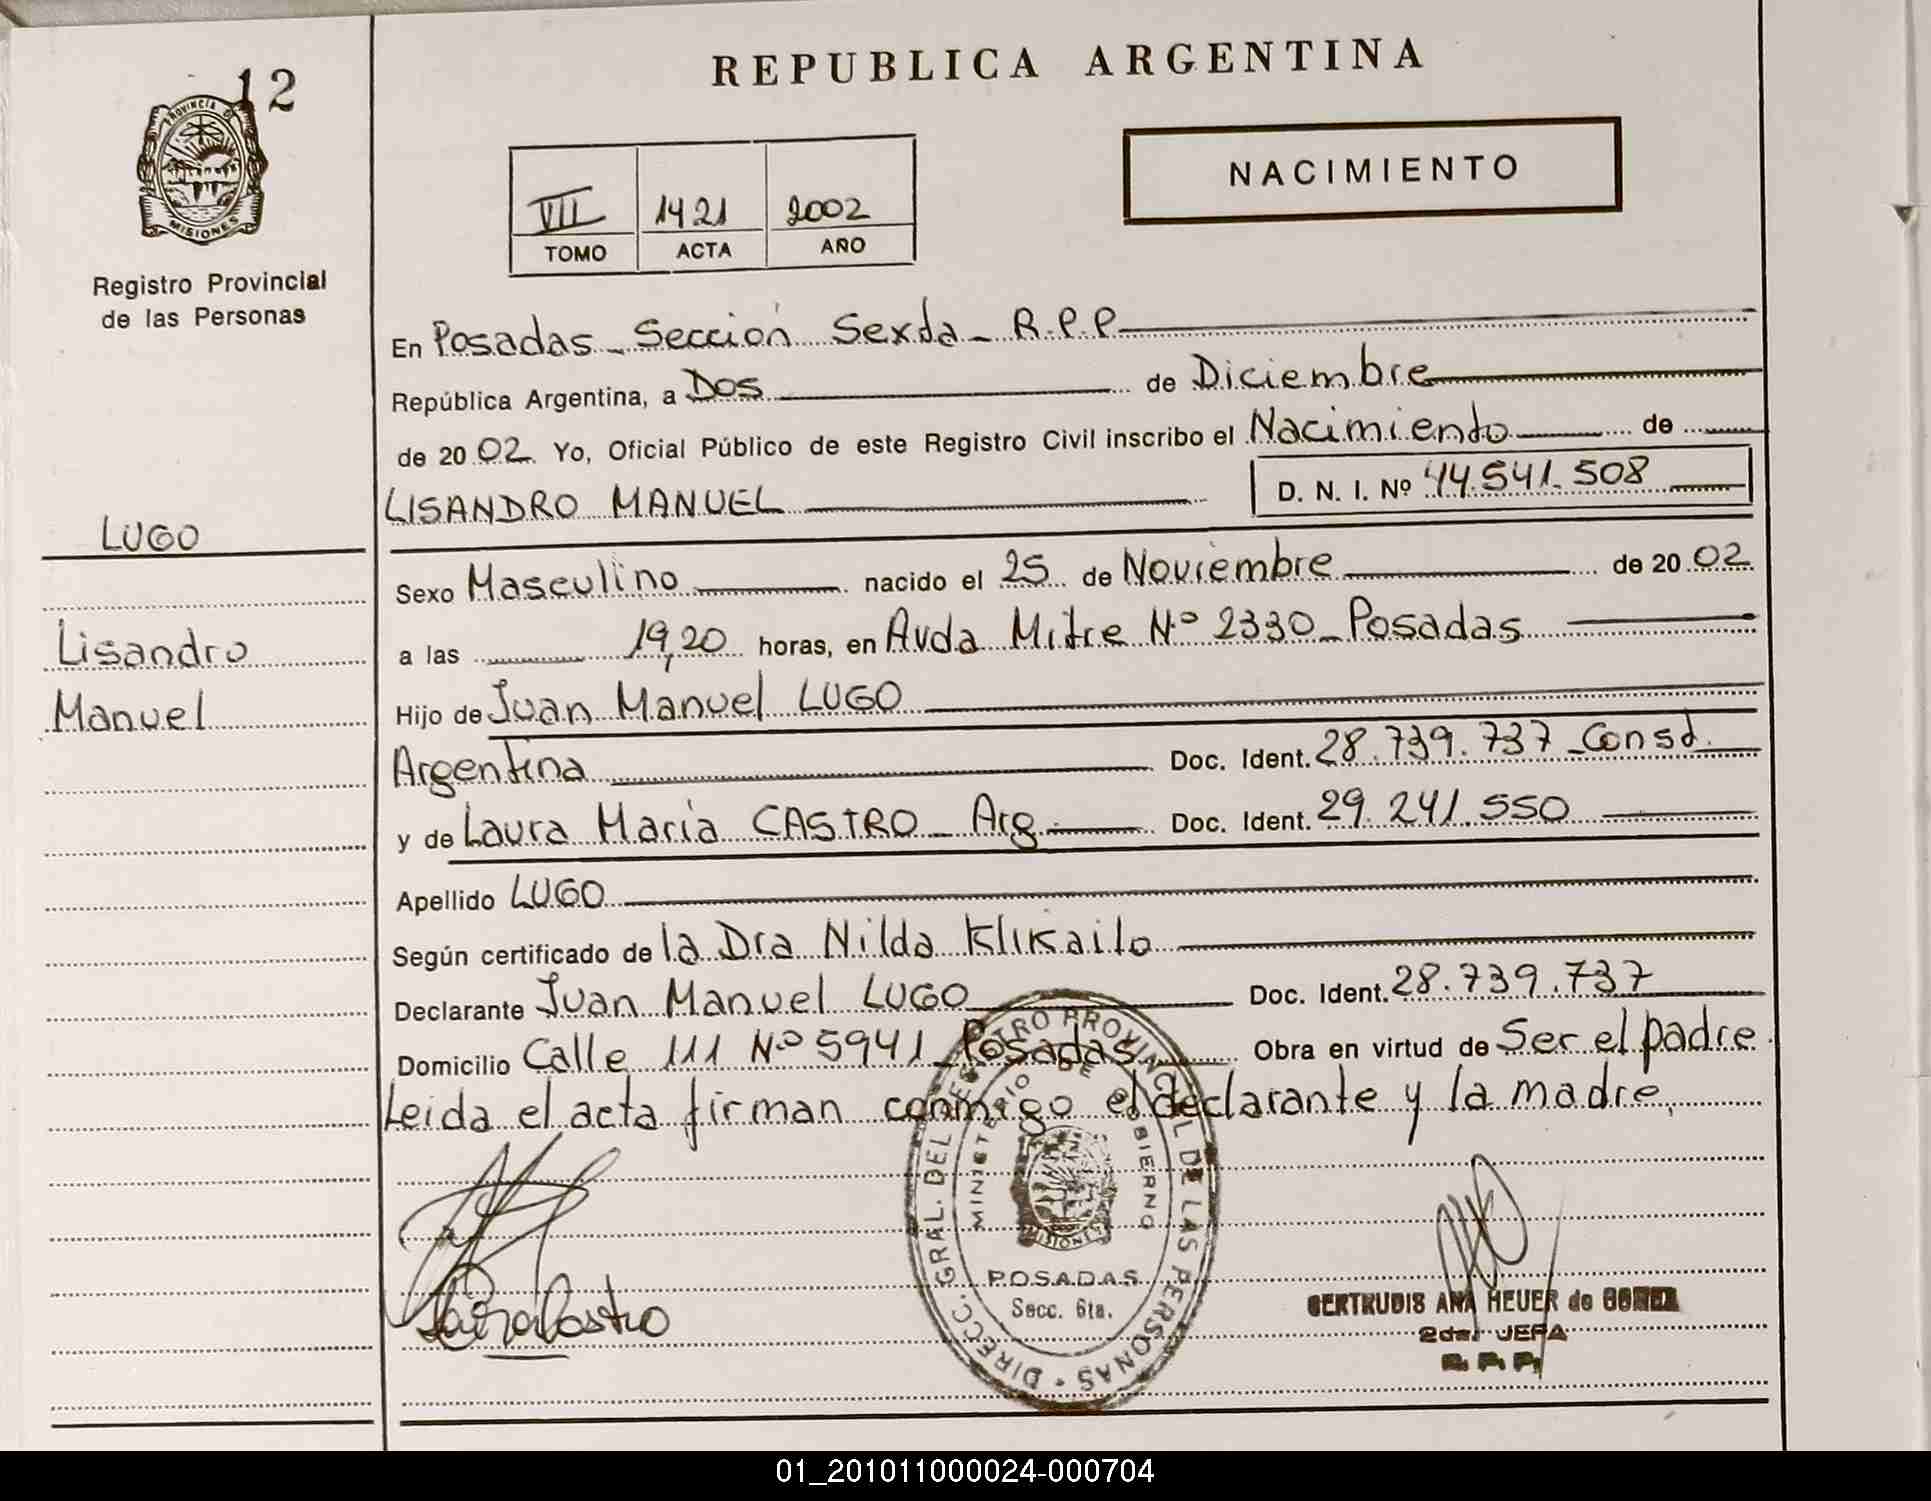 12
PROVINCIA DE
MISIONES
Registro Provincial
de las Personas
LUGO
Lisandro
Manuel
REPUBLICA ARGENTINA
NACIMIENTO
VII 1421 2002
TOMO ACTA AÑO
En Posadas - Sección Sexta - R.P.P.
República Argentina, a Dos de Diciembre
de 2002. Yo, Oficial Público de este Registro Civil inscribo el Nacimiento de
LISANDRO MANUEL D. N. I. Nº 44.541.508
Sexo Masculino nacido el 25 de Noviembre de 2002
a las 19,20 horas, en Avda Mitre Nº 2330 - Posadas
Hijo de Juan Manuel LUGO
Argentina Doc. Ident. 28.739.737 - Const.
y de Laura María CASTRO - Arg. Doc. Ident. 29.241.550
Apellido LUGO
Según certificado de la Dra Nilda Klikailo
Declarante Juan Manuel LUGO Doc. Ident. 28.739.737
Domicilio Calle 111 Nº 5941 - Posadas Obra en virtud de Ser el padre.
Leida el acta firman conmigo el declarante y la madre.
DIRECC. GRAL. DEL REGISTRO PROVINCIAL DE LAS PERSONAS
MINISTERIO DE GOBIERNO
MISIONES
POSADAS
Secc. 6ta.
Laura Castro
GERTRUDIS ANA HEUER de
2da. JEFA
R. P. P.
01_201011000024-000704